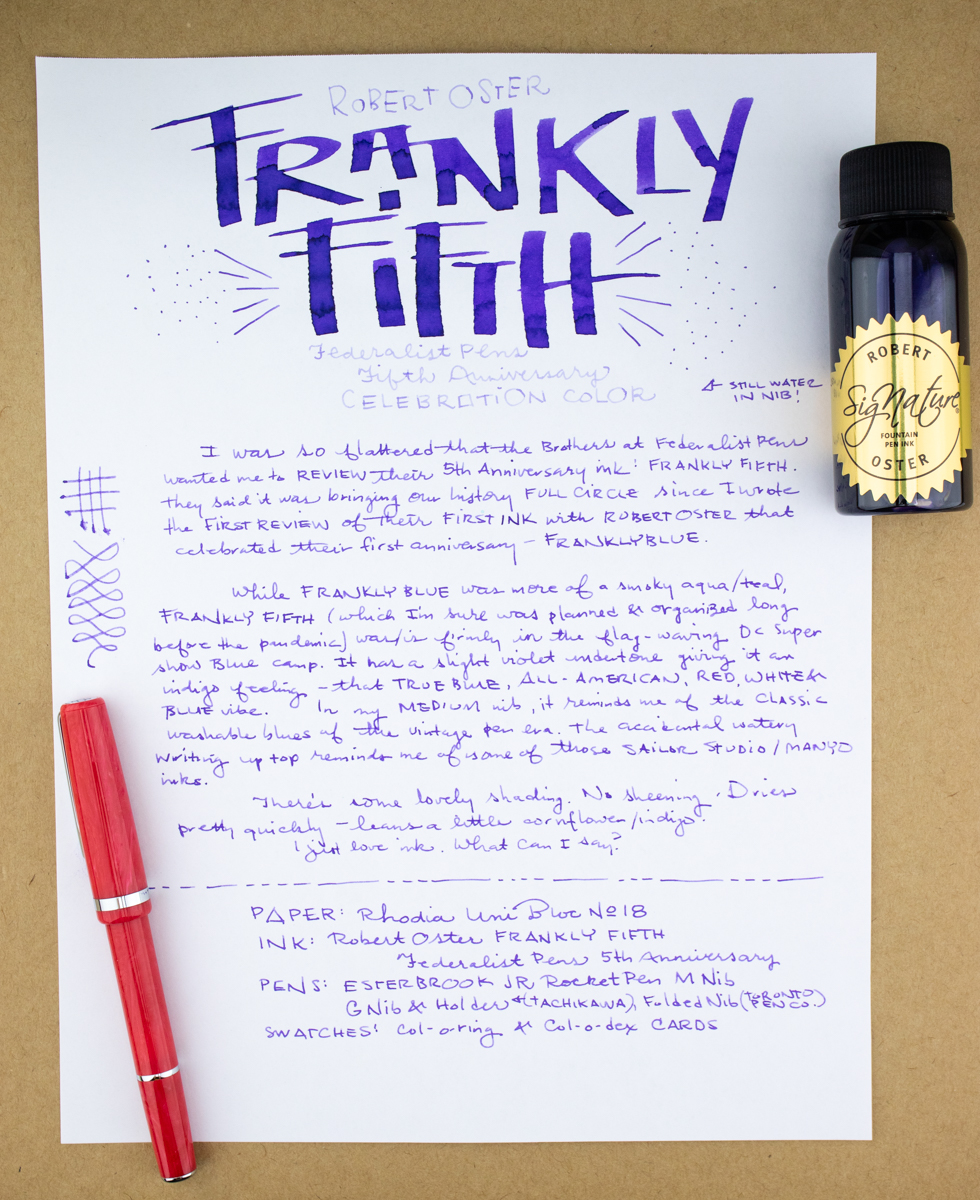 ROBERT OSTER
FRANKLY
FIFTH
Federalist Pens
Fifth Anniversary
CELEBRATION COLOR
← STILL WATER
IN NIB!
I was so flattered that the Brothers at Federalist Pens
wanted me to REVIEW their 5th Anniversary ink: FRANKLY FIFTH.
they said it was bringing our history FULL CIRCLE since I wrote
the FIRST REVIEW of their FIRST INK with ROBERT OSTER that
celebrated their first anniversary – FRANKLYBLUE.
While FRANKLY BLUE was more of a smoky aqua/teal,
FRANKLY FIFTH (which I'm sure was planned & organized long
before the pandemic) was/is firmly in the flag-waving DC Super
show Blue camp. It has a slight violet undertone giving it an
indigo feeling – that TRUE BLUE, ALL-AMERICAN, RED, WHITE &
BLUE vibe. In my MEDIUM nib, it reminds me of the CLASSIC
washable blues of the vintage pen era. The accidental watery
writing up top reminds me of some of those SAILOR STUDIO/MANYO
inks.
There's some lovely shading. No sheening. Dries
pretty quickly – leans a little cornflower/indigo.
I just love ink. What can I say?
PAPER: Rhodia Uni Bloc Nº18
INK: Robert Oster FRANKLY FIFTH
Federalist Pens 5th Anniversary
PENS: ESTERBROOK JR Rocket Pen M Nib
G Nib & Holder (TACHIKAWA), Folded Nib (TORONTO PEN CO.)
SWATCHES: Col-o-ring & Col-o-dex CARDS
ROBERT
SigNature
FOUNTAIN
PEN INK
OSTER